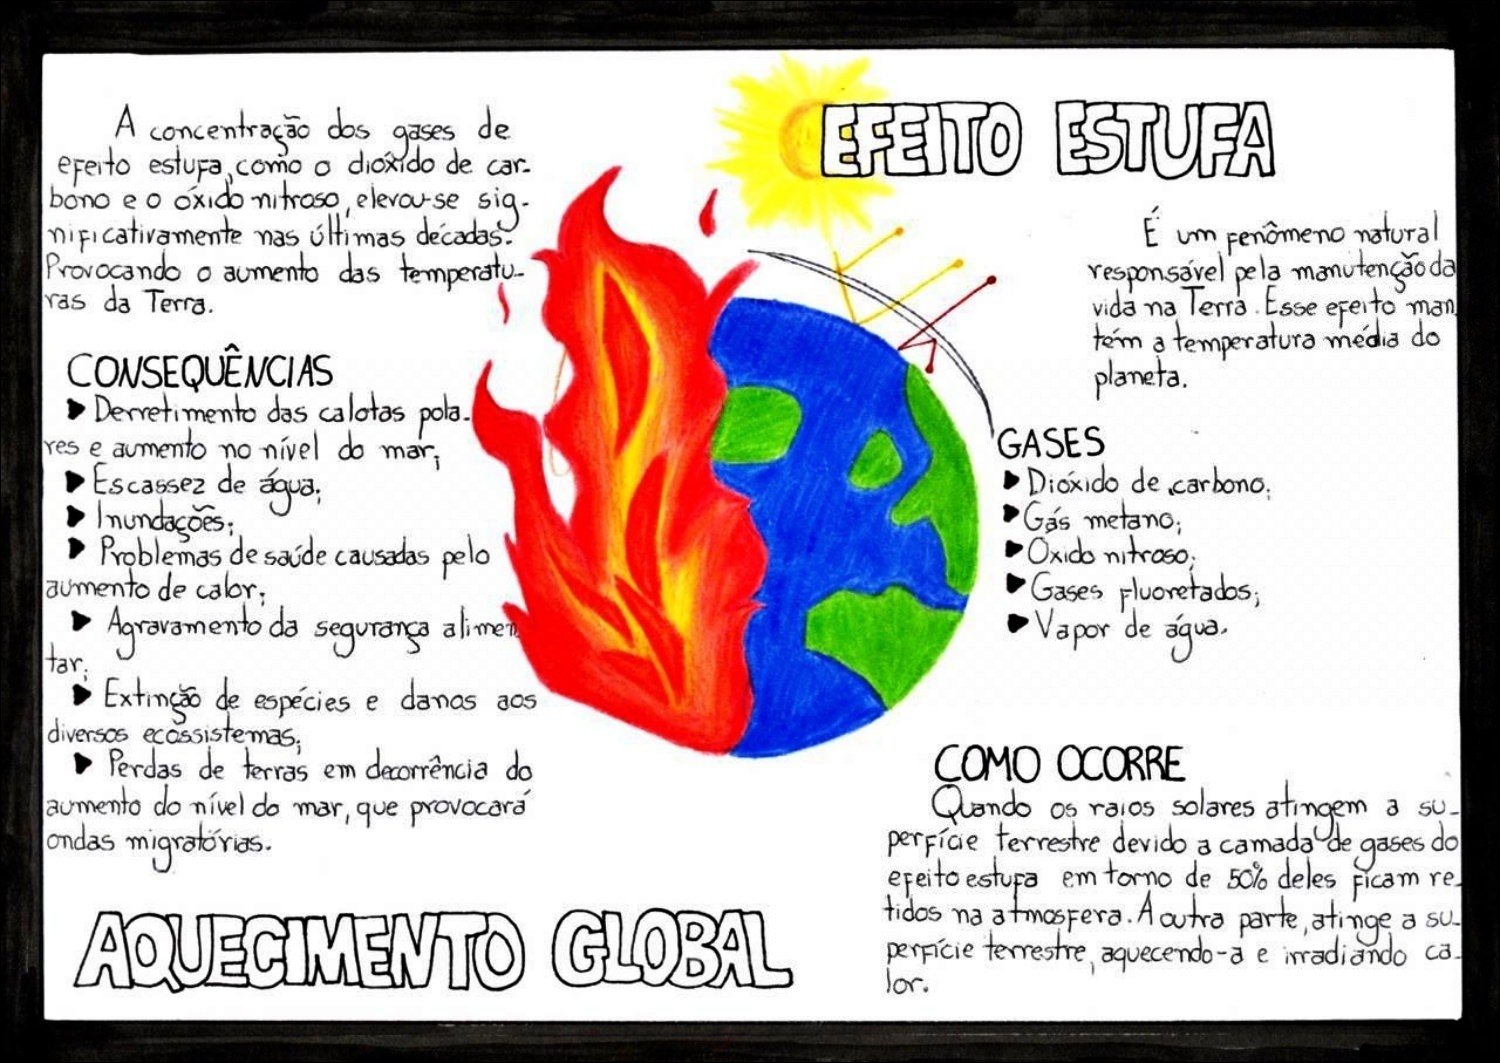 A concentração dos gases de
efeito estufa, como o dióxido de car-
bono e o óxido nitroso, elevou-se sig-
nificativamente nas últimas décadas.
Provocando o aumento das temperatu-
ras da Terra.
CONSEQUÊNCIAS
Derretimento das calotas pola-
res e aumento no nível do mar;
Escassez de água;
Inundações;
Problemas de saúde causadas pelo
aumento de calor;
Agravamento da segurança alimen
tar;
Extinção de espécies e danos aos
diversos ecossistemas;
Perdas de terras em decorrência do
aumento do nível do mar, que provocará
ondas migratórias.
AQUECIMENTO GLOBAL
EFEITO ESTUFA
É um fenômeno natural
responsável pela manutenção da
vida na Terra. Esse efeito man
tém a temperatura média do
planeta.
GASES
Dióxido de carbono;
Gás metano;
Óxido nitroso;
Gases fluoretados;
Vapor de água.
COMO OCORRE
Quando os raios solares atingem a su-
perfície terrestre devido a camada de gases do
efeito estufa em torno de 50% deles ficam re-
tidos na atmosfera. A outra parte, atinge a su-
perfície terrestre, aquecendo-a e irradiando ca-
lor.